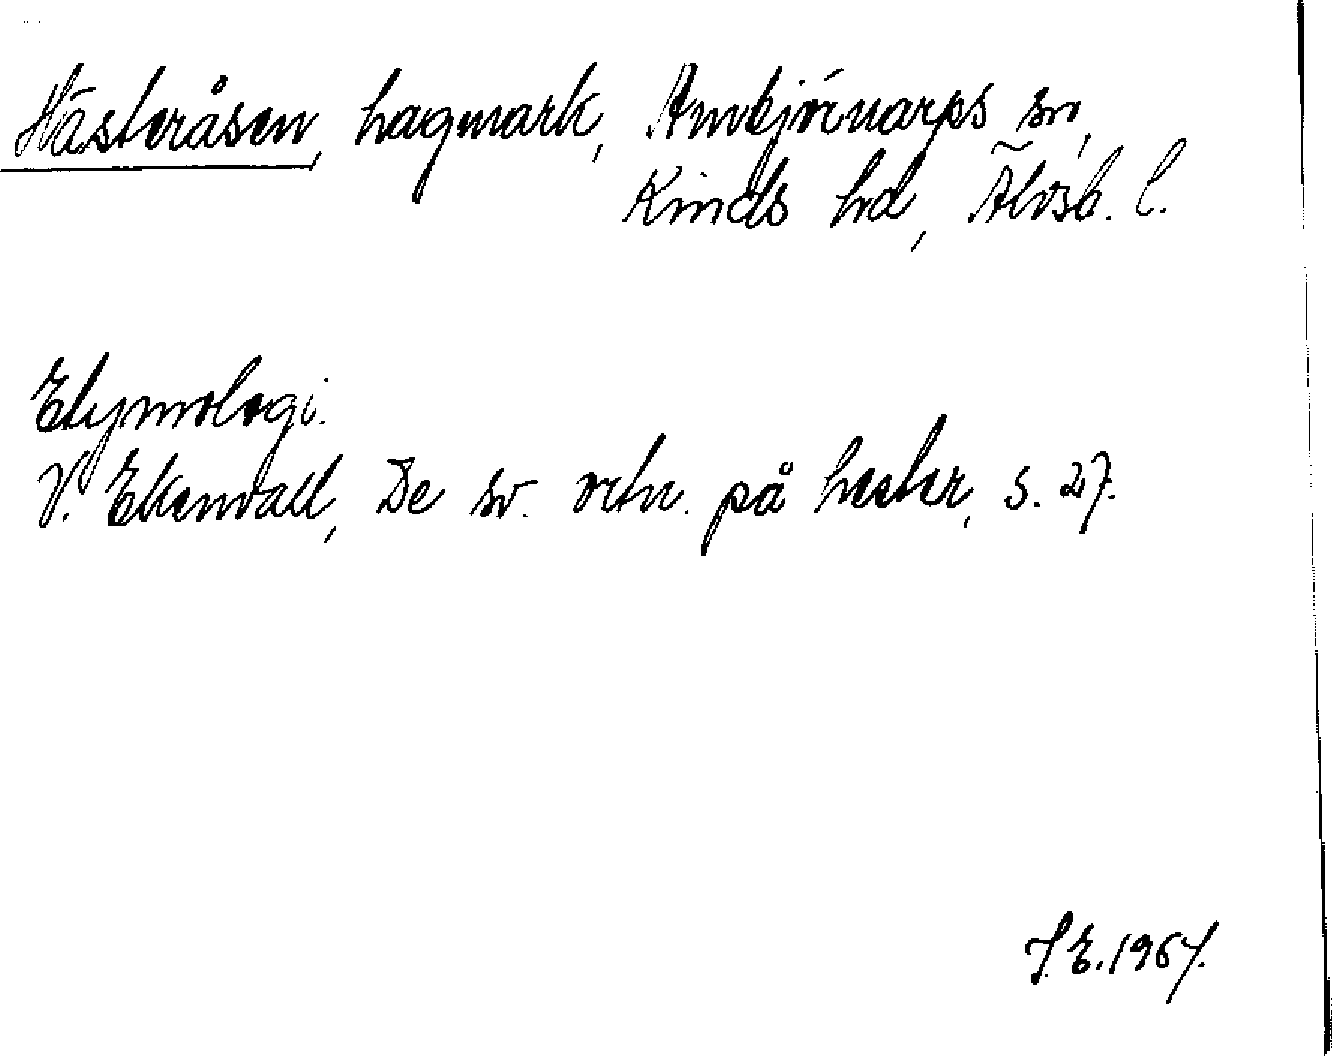 Hästeråsen, hagmark, Ambjörnarps sn,
Kinds hd, Älvsb. l.
Etymologi.
V. Ekenvall, De sv. ortn. på hester, s. 27.
J. E. 1967.